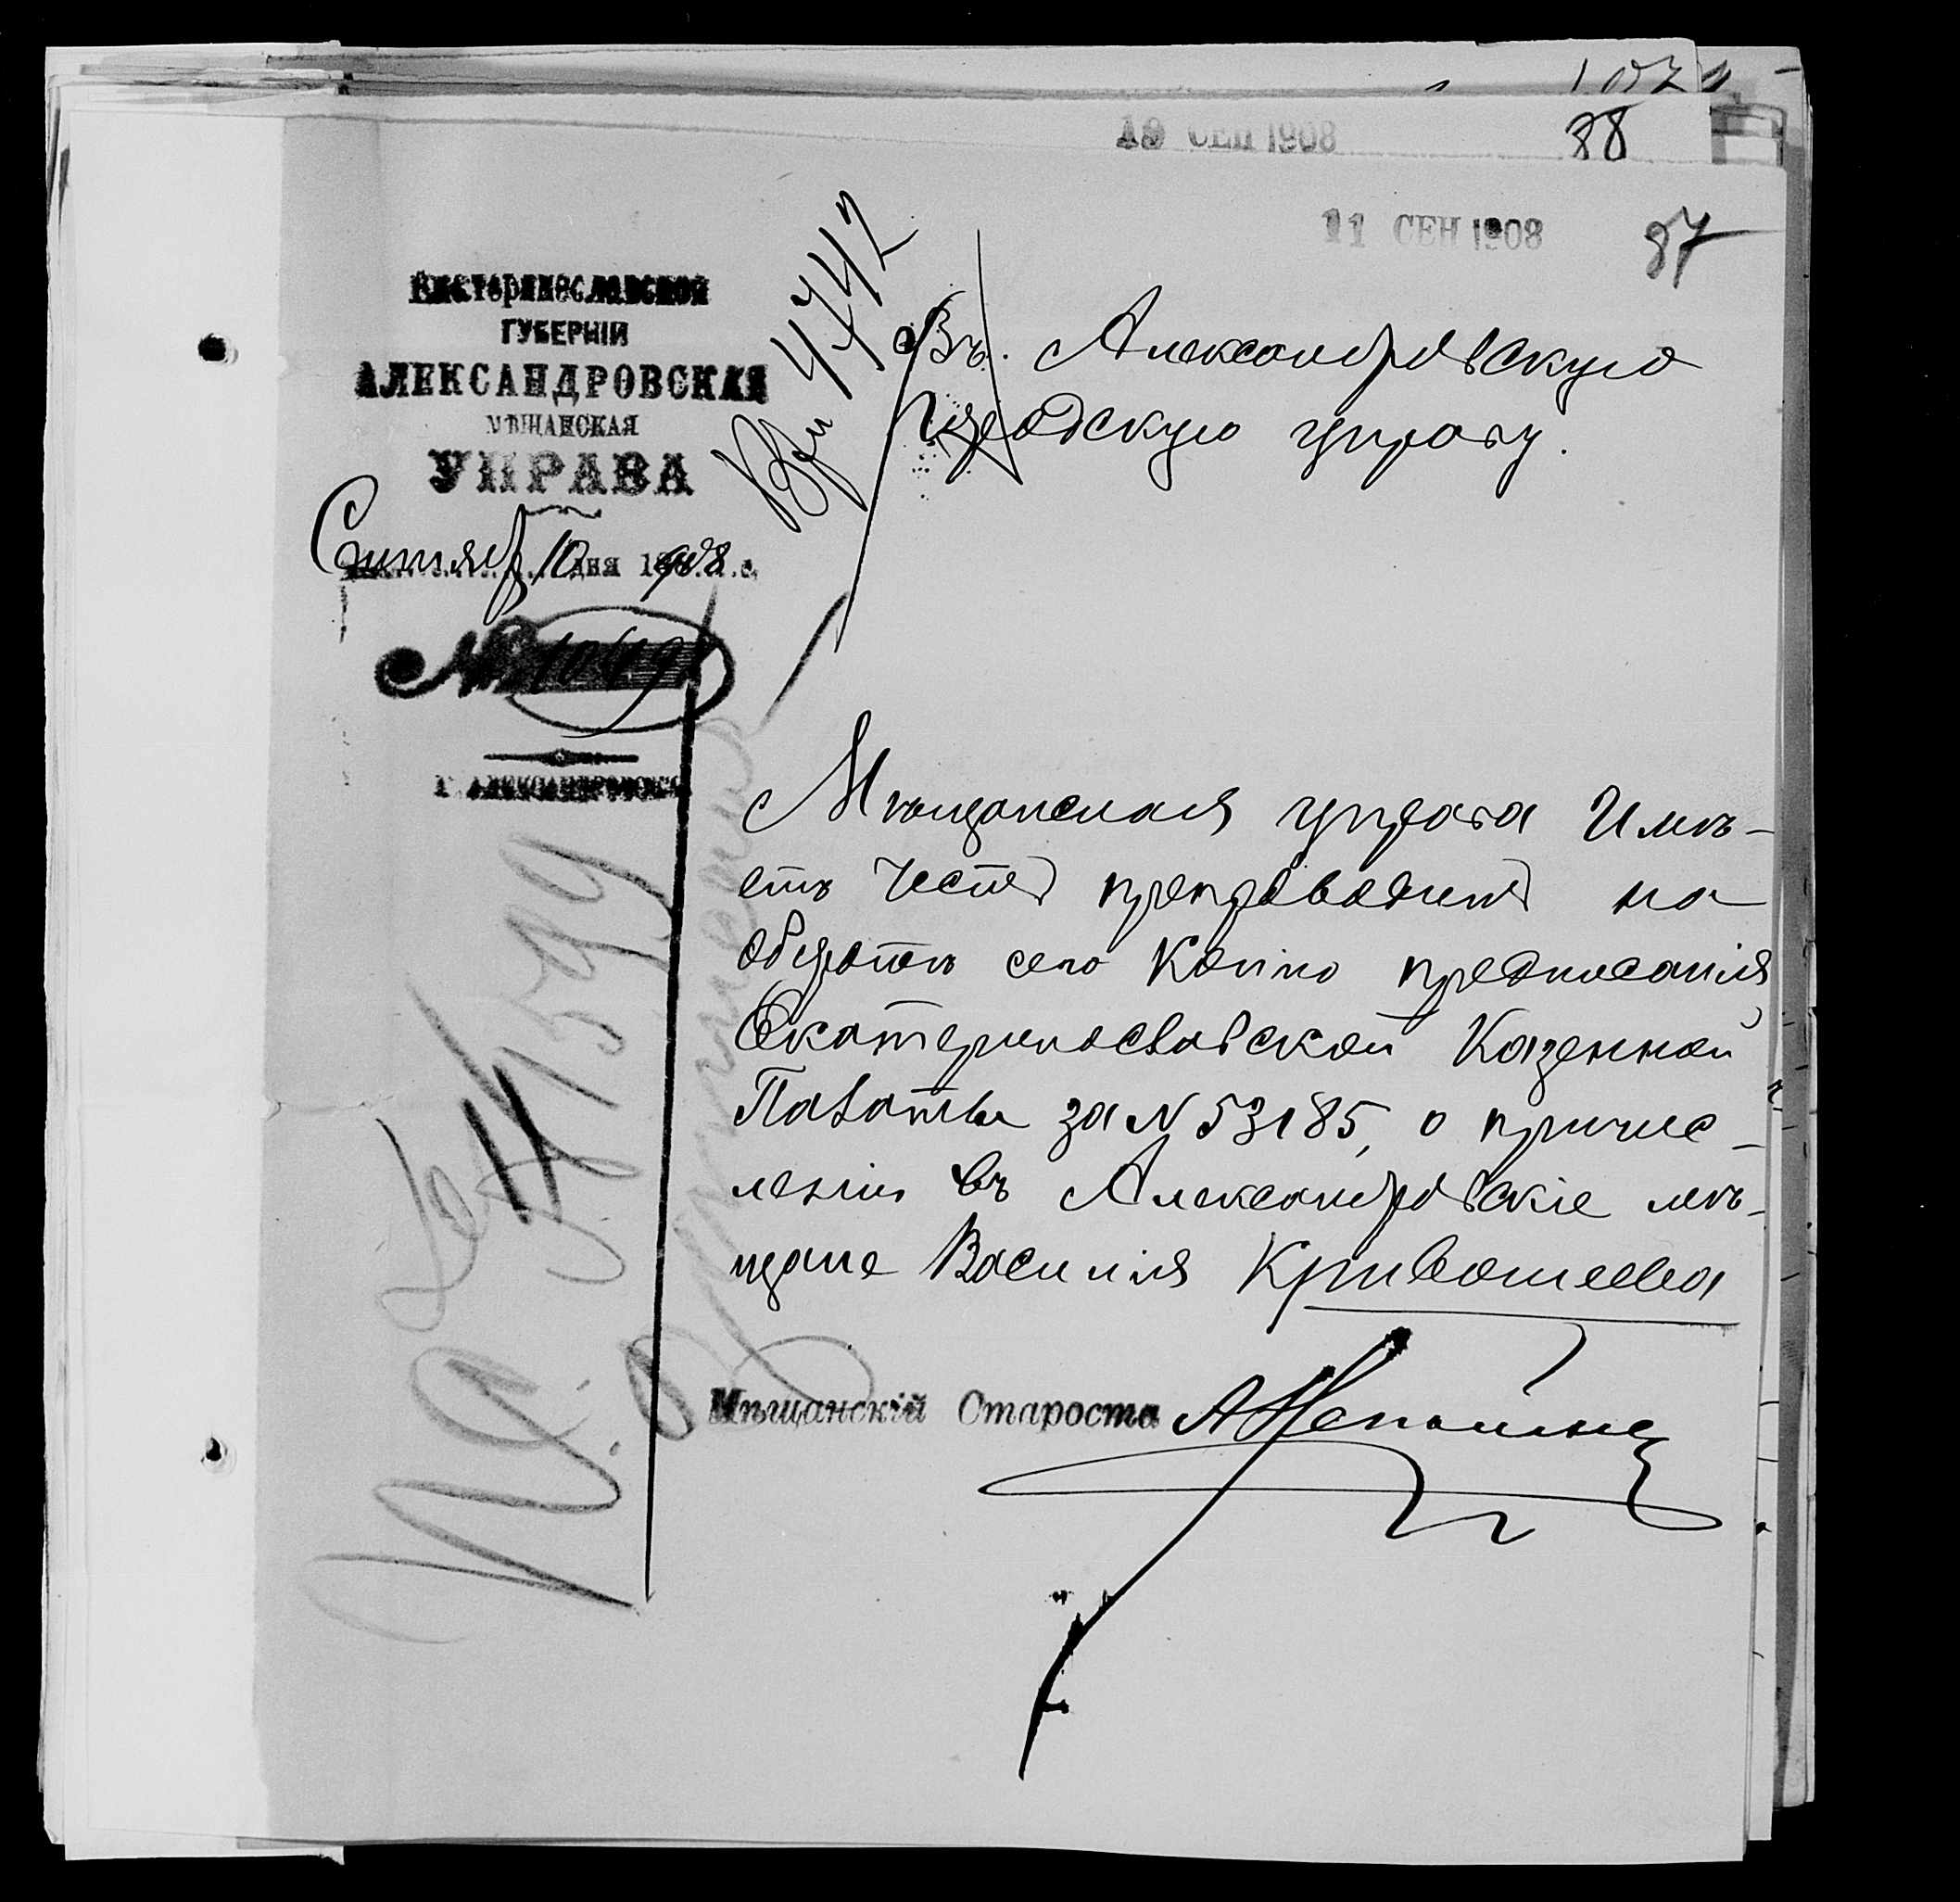 19 СЕН 1908
88
11 СЕН 1908
87
Екатеринославской
ГУБЕРНІИ
АЛЕКСАНДРОВСКАЯ
МѢЩАНСКАЯ
УПРАВА
Сентябр 10 дня 1908 г.
№
Г. АЛЕКСАНДРОВСКЪ
Въ Александровскую
Городскую управу.
Мѣщанская управа Имѣ-
етъ честь препроводить на
оборотѣ сего Копію предписанія
Екатеринославской Казенной
Палаты за N 53185, о причис-
леніи въ Александровскіе мѣ-
щане Василія Кривошеева
Мѣщанскій Староста